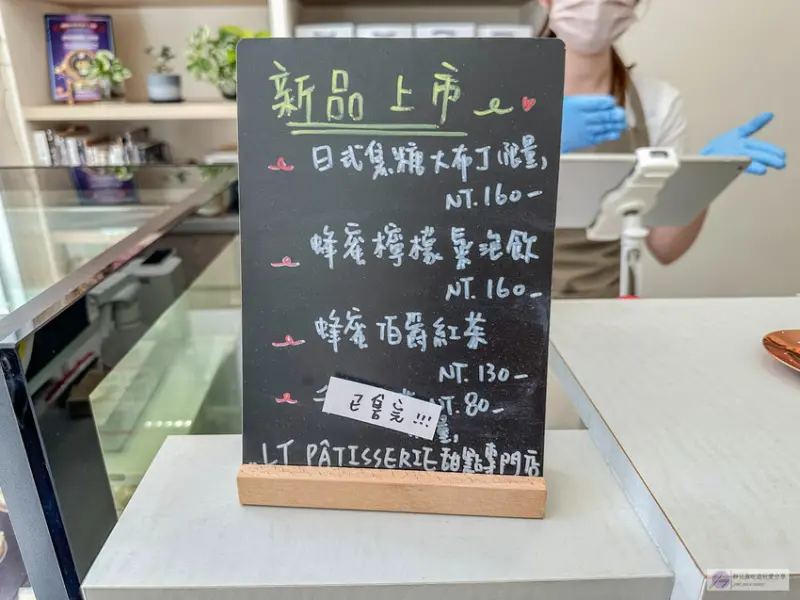 新品上市
日式焦糖大布丁限量,
NT.160-
蜂蜜檸檬氣泡飲
NT.160-
蜂蜜伯爵紅茶
NT.130-
已售完!!!
NT.80-
量,
LT PÂTISSERIE甜點專門店